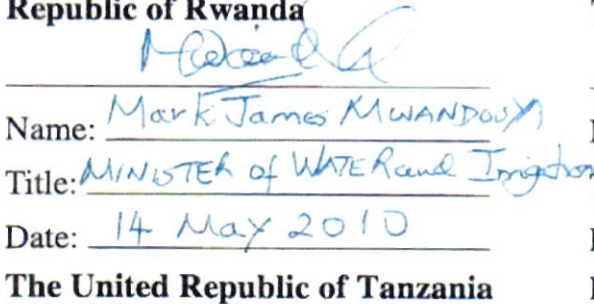 Republic of Rwanda
Name: Mark James MWANDOSYA
Title: MINISTER of WATER and Irrigation
Date: 14 May 2010
The United Republic of Tanzania